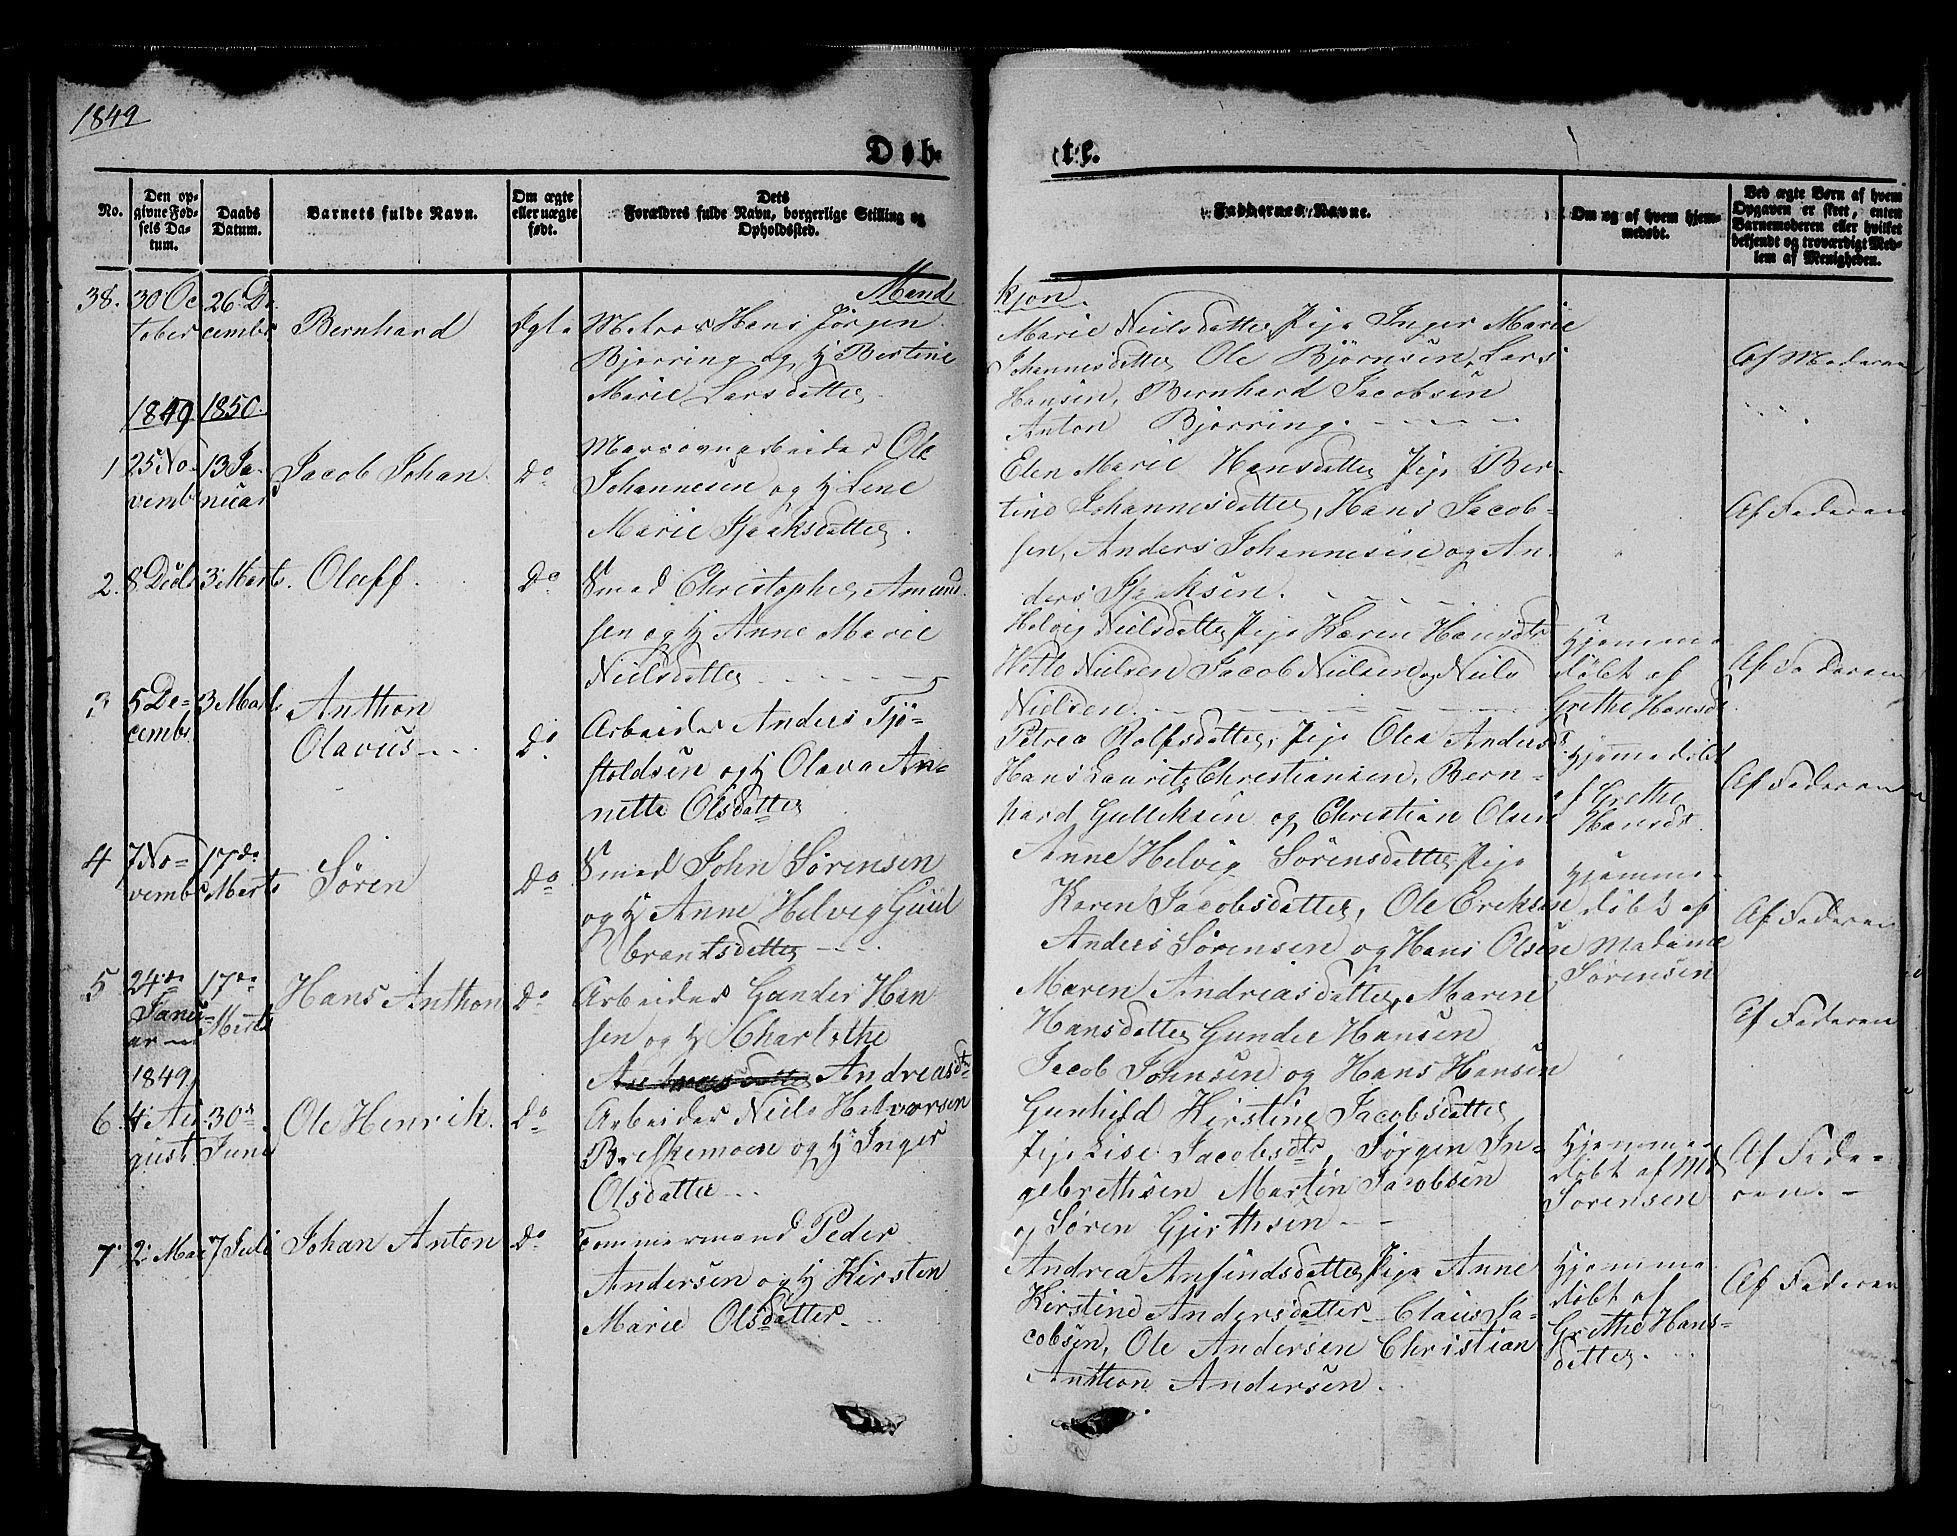 1849
Døb-
te.
No.
Den op-
givne Fød-
sels Da-
tum.
Daabs
Datum.
Barnets fulde Navn.
Om ægte
eller uægte
født.
Dets
Forældres fulde Navn, borgerlige Stilling og
Opholdssted.
Faddernes Navne.
Om og af hvem hjem-
medøbt.
Ved ægte Børn af hvem
Opgaven er skeet, enten
Barnemoderen eller hvilket
bekjendt og troværdigt Med-
lem af Menigheden.
Mand
kjøn.
38.
30 Oc
tober
26 De
cembr
Bernhard
Ægte
Matros Hans Jørgen
Bjerring og H Bertine
Marie Larsdatter
Marie Neilsdatter, Pige Inger Marie
Johannesdatter Ole Bjørnsen, Lars
Hansen, Bernhard Jacobsen
Anton Bjerring.
Af Moderen
1849
1850.
1
25 No-
vemb
13 Ja-
nuar
Jacob Johan
Do
Marsovnarbeider Ole
Johannesen og H Lene
Marie Isaksdatter.
Elen Marie Hansdatter Pige Ber-
tine Johannesdatter, Hans Jacob-
sen, Anders Johannesen og An-
ders Isaksen.
Af Faderen
2.
8 Decb
3 Marts
Olaff.
Do
Smed Christopher Amund
sen og H Anne Marie
Nielsdatter
Helvig Nielsdatter Pige Karen Hansdtr
Nielsen Jacob Nielsen og Niels
Nielsen
Hjemme
døbt af
Grethe Hansd
Af Faderen
3
5 De-
cembr
3 Marts
Anthon
Olavus
Do
Arbeider Anders Tjø-
stoldsen og H Olava An-
nette Olsdatter
Petrea Rolfsdatter, Pige Olea Andersd
Hans Lauritz Christiansen, Bern-
hard Gulliksen og Christian Olsen
Hjemmedøbt
af Grethe
Hansdt.
Af Faderen
4
7 No-
vembr
17de
Marts
Søren
Do
Smed John Sørensen
og H Anne Helvig Guul
brantsdatter
Anne Helvig Sørensdatter Pige
Karen Jacobsdatter, Ole Eriksen
Anders Sørensen og Hans Olsen
Hjemme-
døbt af
Madame
Sørensen
Af Faderen
5
24de
Janu-
ar
17de
Marts
Hans Anthon
Do
Arbeider Gunder Han
sen og H Charlothe
Andreasdtr
Maren Andreasdatter, Maren
Hansdatter Gunder Hansen
Jacob Johnsen og Hans Hansen
Af Faderen
1849
6.
4 Au
gust
30te
Juni
Ole Henrik.
Do
Arbeider Niels Halvorsen
Breskemoen og H Inger
Olsdatter
Gunhild Kirstine Jacobsdatter
Pige Lise Jacobsdtr, Jørgen In-
gebrethsen Martin Jacobsen
og Søren Gjerthsen
Hjemme
døbt af Md
Sørensen
Af Fade-
ren.
7
2 Mai
7 Juli
Johan Anton
Do
Tømmermand Peder
Andersen og H Kirsten
Marie Olsdatter
Andrea Anfindsdatter Pige Anne
Kirstine Andersdatter Claus Ja-
cobsen, Ole Andersen Christian
Antheon Andersen.
Hjemme
døbt af
Grethe Hans-
datter.
Af Faderen